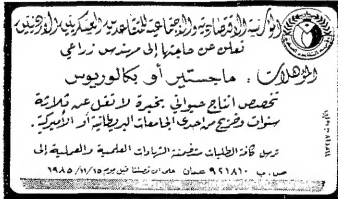 المؤسسة الاقتصادية والاجتماعية للمتقاعدين العسكريين الأردنيين
تعلن عن حاجتها إلى مهندس زراعي
المؤهلات : ماجستير أو بكالوريوس
تخصص انتاج حيواني بخبرة لا تقل عن ثلاثة
سنوات وخريج من احدى الجامعات البريطانية أو الأمريكية.
ترسل كافة الطلبات متضمنة الشهادات العلمية والعملية إلى
ص.ب ٩٢١٨١٠ عمان على ان تصلنا قبل يوم ١٩٨٥/١١/١٥